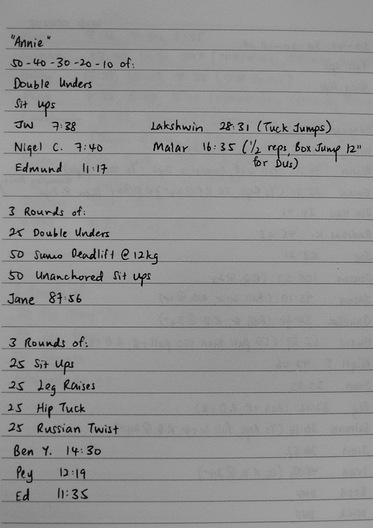 "Annie"
50-40-30-20-10 of:
Double Unders
Sit Ups
JW 7:38 Lakshwin 28:31 (Tuck Jumps)
Nigel C. 7:40 Malar 16:35 (1/2 reps, Box Jump 12"
for DUs)
Edmund 11:17
3 Rounds of:
25 Double Unders
50 Sumo Deadlift @ 12kg
50 Unanchored Sit Ups
Jane 87:56
3 Rounds of:
25 Sit Ups
25 Leg Raises
25 Hip Tuck
25 Russian Twist
Ben Y. 14:30
Pey 12:19
Ed 11:35